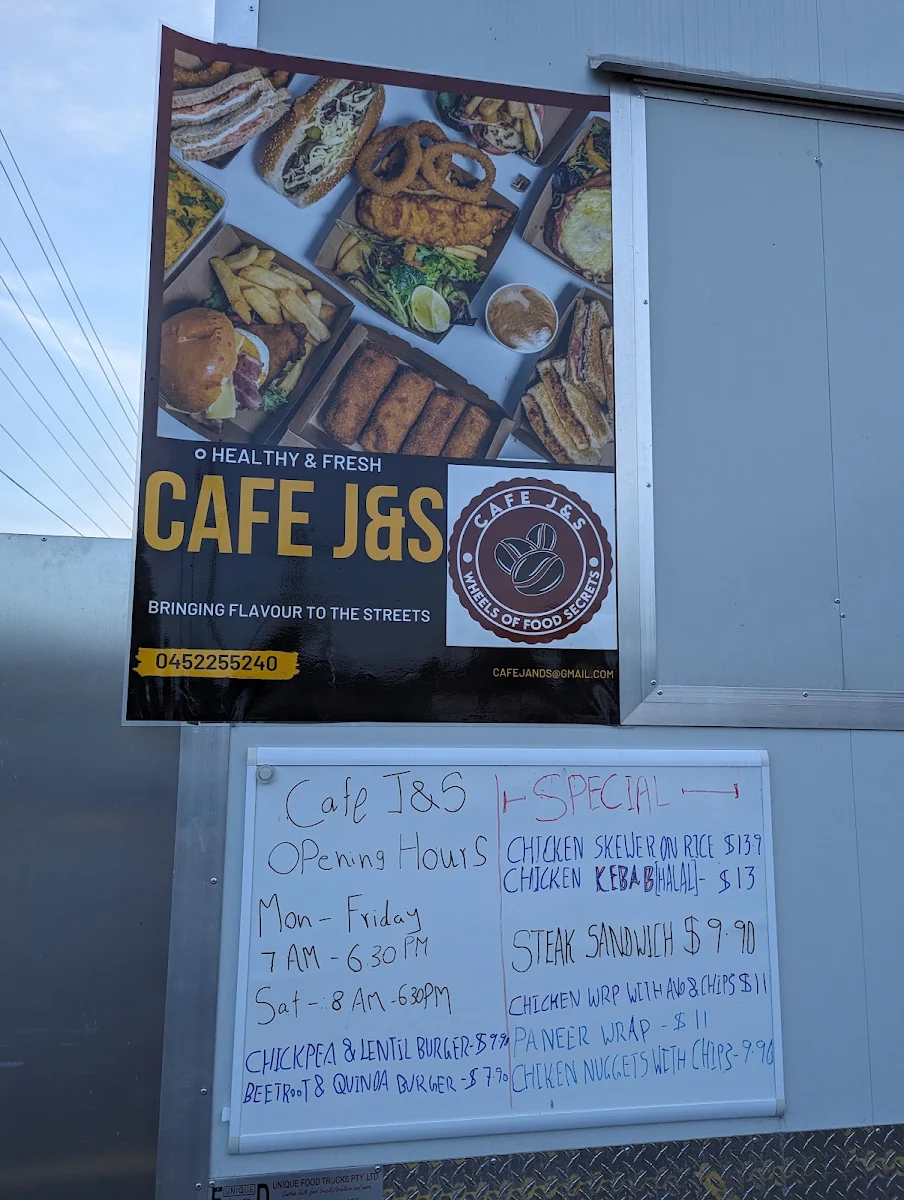 HEALTHY & FRESH
CAFE J&S
BRINGING FLAVOUR TO THE STREETS
0452255240
CAFE J&S
WHEELS OF FOOD SECRETS
CAFEJANDS@GMAIL.COM
Cafe J&S
OPening Hours
Mon - Friday
7 AM - 6.30 PM
Sat -: 8 AM - 630PM
CHICKPEA & LENTIL BURGER - $9.90
BEETROOT & QUINOA BURGER - $7.90
SPECIAL
CHICKEN SKEWER ON RICE $13.9
CHICKEN KEBAB [HALAL] - $13
STEAK SANDWICH $9.90
CHICKEN WRP WITH AVO & CHIPS $11
PANEER WRAP - $11
CHIKEN NUGGETS WITH CHIPS - 9.90
UNIQUE
UNIQUE FOOD TRUCKS PTY LTD